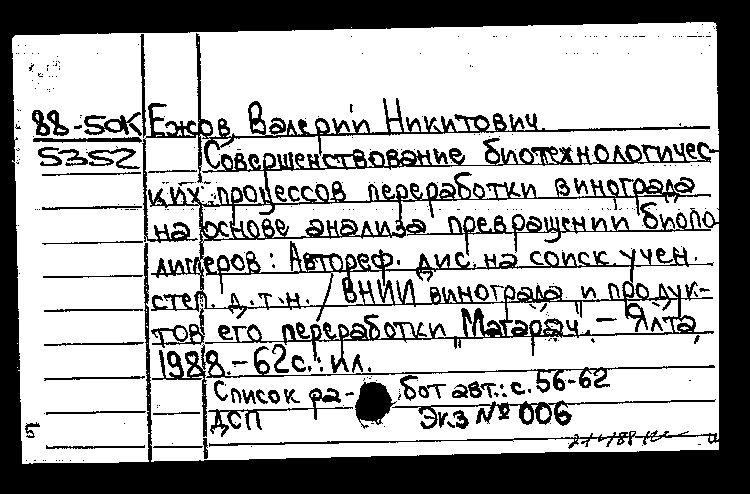 88-50К Ежов, Валерий Никитович.
5352 Совершенствование биотехнологичес-
ких процессов переработки винограда
на основе анализа превращений биопо
лимеров: Автореф. дис. на соиск. учен.
степ. д.т.н. / ВНИИ винограда и продук-
тов его переработки "Магарач". – Ялта,
1988. – 62с.: ил.
Список ра- бот авт.: с. 56-62
ДСП Экз № 006
5